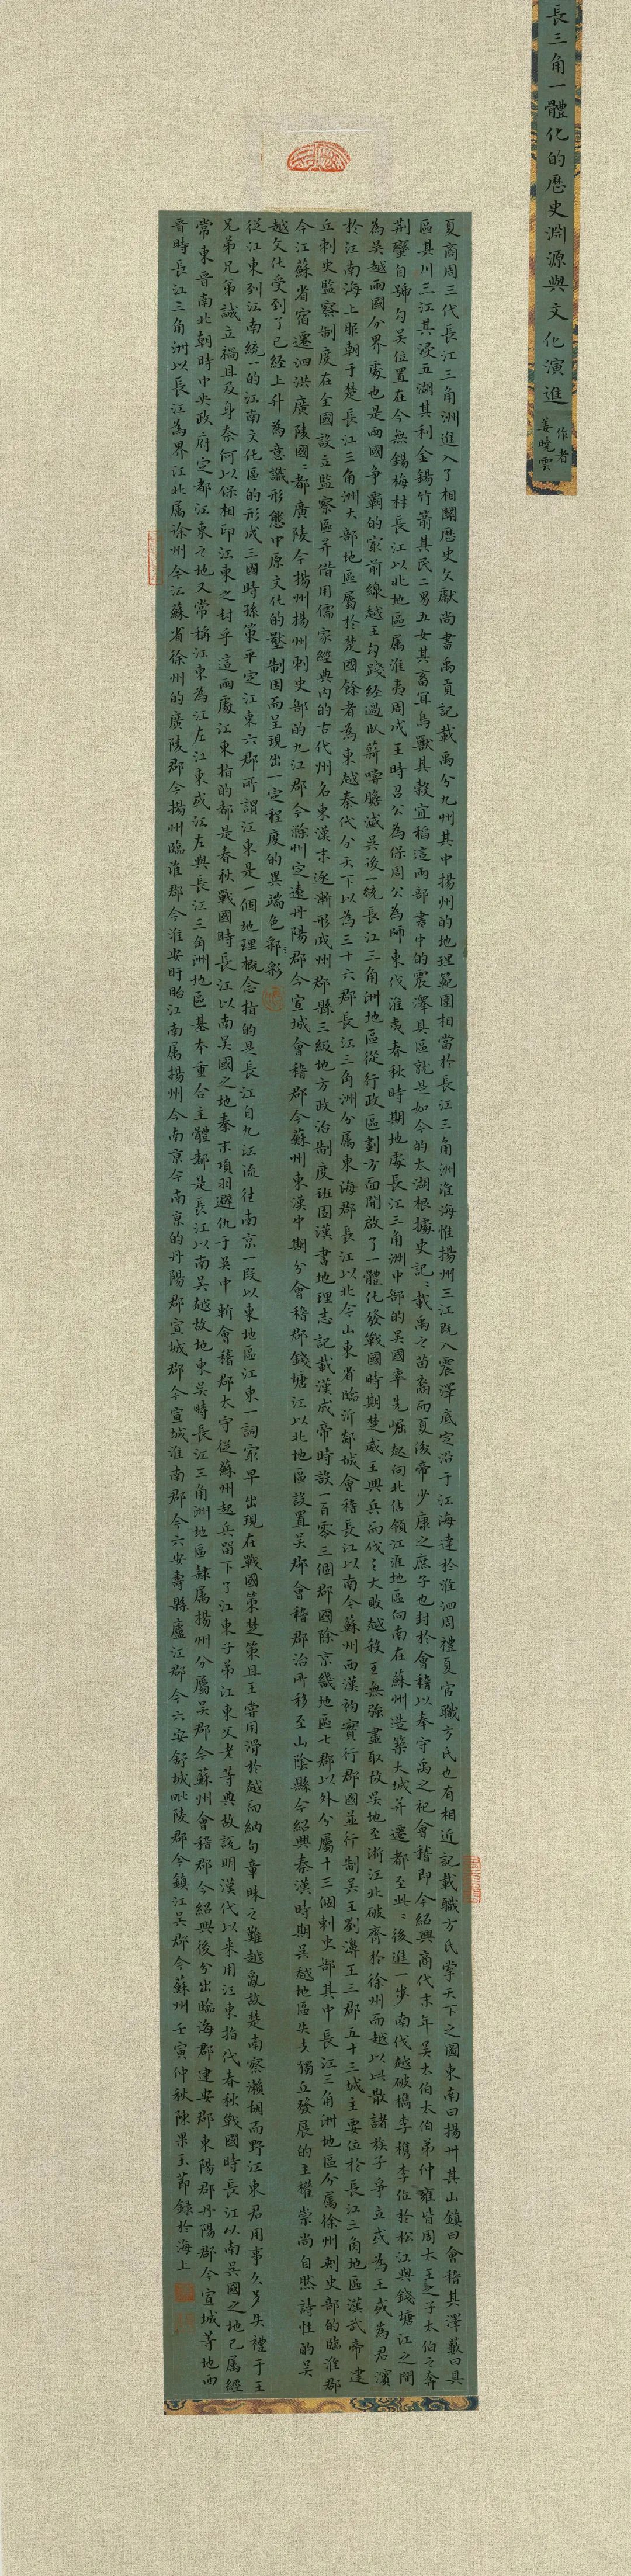 長三角一體化的歷史淵源與文化演進
作者
姜曉雲
夏商周三代長江三角洲進入了相關歷史文獻尚書禹貢記載禹分九州其中揚州的地理範圍相當於長江三角洲淮海惟揚州三江既入震澤底定沿于江海達於淮泗周禮夏官職方氏也有相近記載職方氏掌天下之圖東南曰揚州其山鎮曰會稽其澤藪曰具
區其川三江其浸五湖其利金錫竹箭其民二男五女其畜宜鳥獸其穀宜稻這兩部書中的震澤具區就是如今的太湖根據史記記載禹之苗裔而夏後帝少康之庶子也封於會稽以奉守禹之祀會稽即今紹興商代末年吳太伯太伯弟仲雍皆周太王之子太伯之奔
荊蠻自號句吳位置在今無錫梅村長江以北地區屬淮夷周成王時召公為保周公為師東伐淮夷春秋時期地處長江三角洲中部的吳國率先崛起向北佔領江淮地區向南在蘇州造築大城并遷都至此後進一步南伐越破檇李檇李位於松江與錢塘江之間
為吳越兩國分界處也是兩國爭霸的最前線越王勾踐經過臥薪嚐膽滅吳後一統長江三角洲地區從行政區劃方面開啟了一體化發戰國時期楚威王興兵而伐之大敗越殺王無彊盡取故吳地至浙江北破齊於徐州而越以此散諸族子爭立或為王或為君濱
於江南海上服朝于楚長江三角洲大部地區屬於楚國餘者為東越秦代分天下以為三十六郡長江三角洲分屬東海郡長江以北今山東省臨沂郯城會稽長江以南今蘇州西漢初實行郡國並行制吳王劉濞王三郡五十三城主要位於長江三角地區漢武帝建
立刺史監察制度在全國設立監察區并借用儒家經典內的古代州名東漢末逐漸形成州郡縣三級地方政治制度班固漢書地理志記載漢成帝時設一百零三個郡國除京畿地區七郡以外分屬十三個刺史部其中長江三角洲地區分屬徐州刺史部的臨淮郡
今江蘇省宿遷泗洪廣陵國國都廣陵今揚州揚州刺史部的九江郡今滁州定遠丹陽郡今宣城會稽郡今蘇州東漢中期分會稽郡錢塘江以北地區設置吳郡會稽郡治所移至山陰縣今紹興秦漢時期吳越地區失去獨立發展的主權崇尚自然詩性的吳
越文化受到了已經上升為意識形態中原文化的壓制因而呈現出一定程度的異端色彩
從江東到江南統一的江南文化區的形成三國時孫策平定江東六郡所謂江東是一個地理概念指的是長江自九江流往南京一段以東地區江東一詞最早出現在戰國策楚策且王嘗用滑於越而納句章昧之難越亂故楚南察瀨胡而野江東君用事久多失禮于王
兄弟兄弟誠立禍且及身奈何以保相印江東之封乎這兩處江東指的都是春秋戰國時長江以南吳國之地秦末項羽避仇于吳中斬會稽郡太守從蘇州起兵留下了江東子弟江東父老等典故說明漢代以來用江東指代春秋戰國時長江以南吳國之地已屬經
常東晉南北朝時中央政府定都江東之地又常稱江東為江左江東或江左與長江三角洲地區基本重合主體都是長江以南吳越故地東吳時長江三角洲地區隸屬揚州分屬吳郡今蘇州會稽郡今紹興後分出臨海郡建安郡東陽郡丹陽郡今宣城等地西
晉時長江三角洲以長江為界江北屬徐州今江蘇省徐州的廣陵郡今揚州臨淮郡今淮安盱眙江南屬揚州今南京今南京的丹陽郡宣城郡今宣城淮南郡今六安壽縣廬江郡今六安舒城毗陵郡今鎮江吳郡今蘇州 壬寅仲秋陳果玉節錄於海上